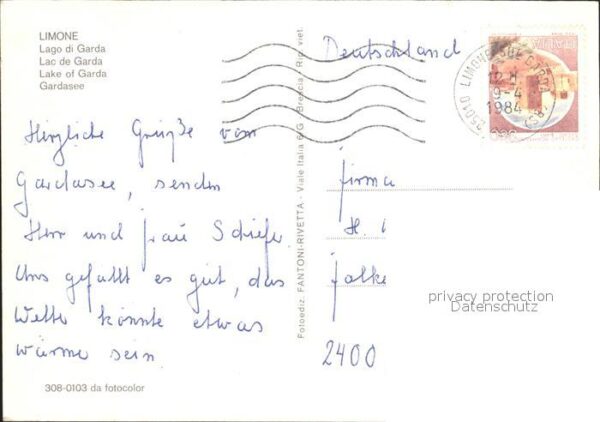 LIMONE
Lago di Garda
Lac de Garda
Lake of Garda
Gardasee
Herzliche Grüße vom
Gardasee, senden
Herr und frau Schiefer
Uns gefallt es gut, das
Wetter könnte etwas
wärme sein
308-0103 da fotocolor
Fotoediz. FANTONI-RIVETTA - Viale Italia 6/G - Brescia - Rip. viet.
Deutschland
25010 LIMONE SUL GARDA (BS)
12-H.
9-4
1984
firma
H.
falke
2400
privacy protection
Datenschutz